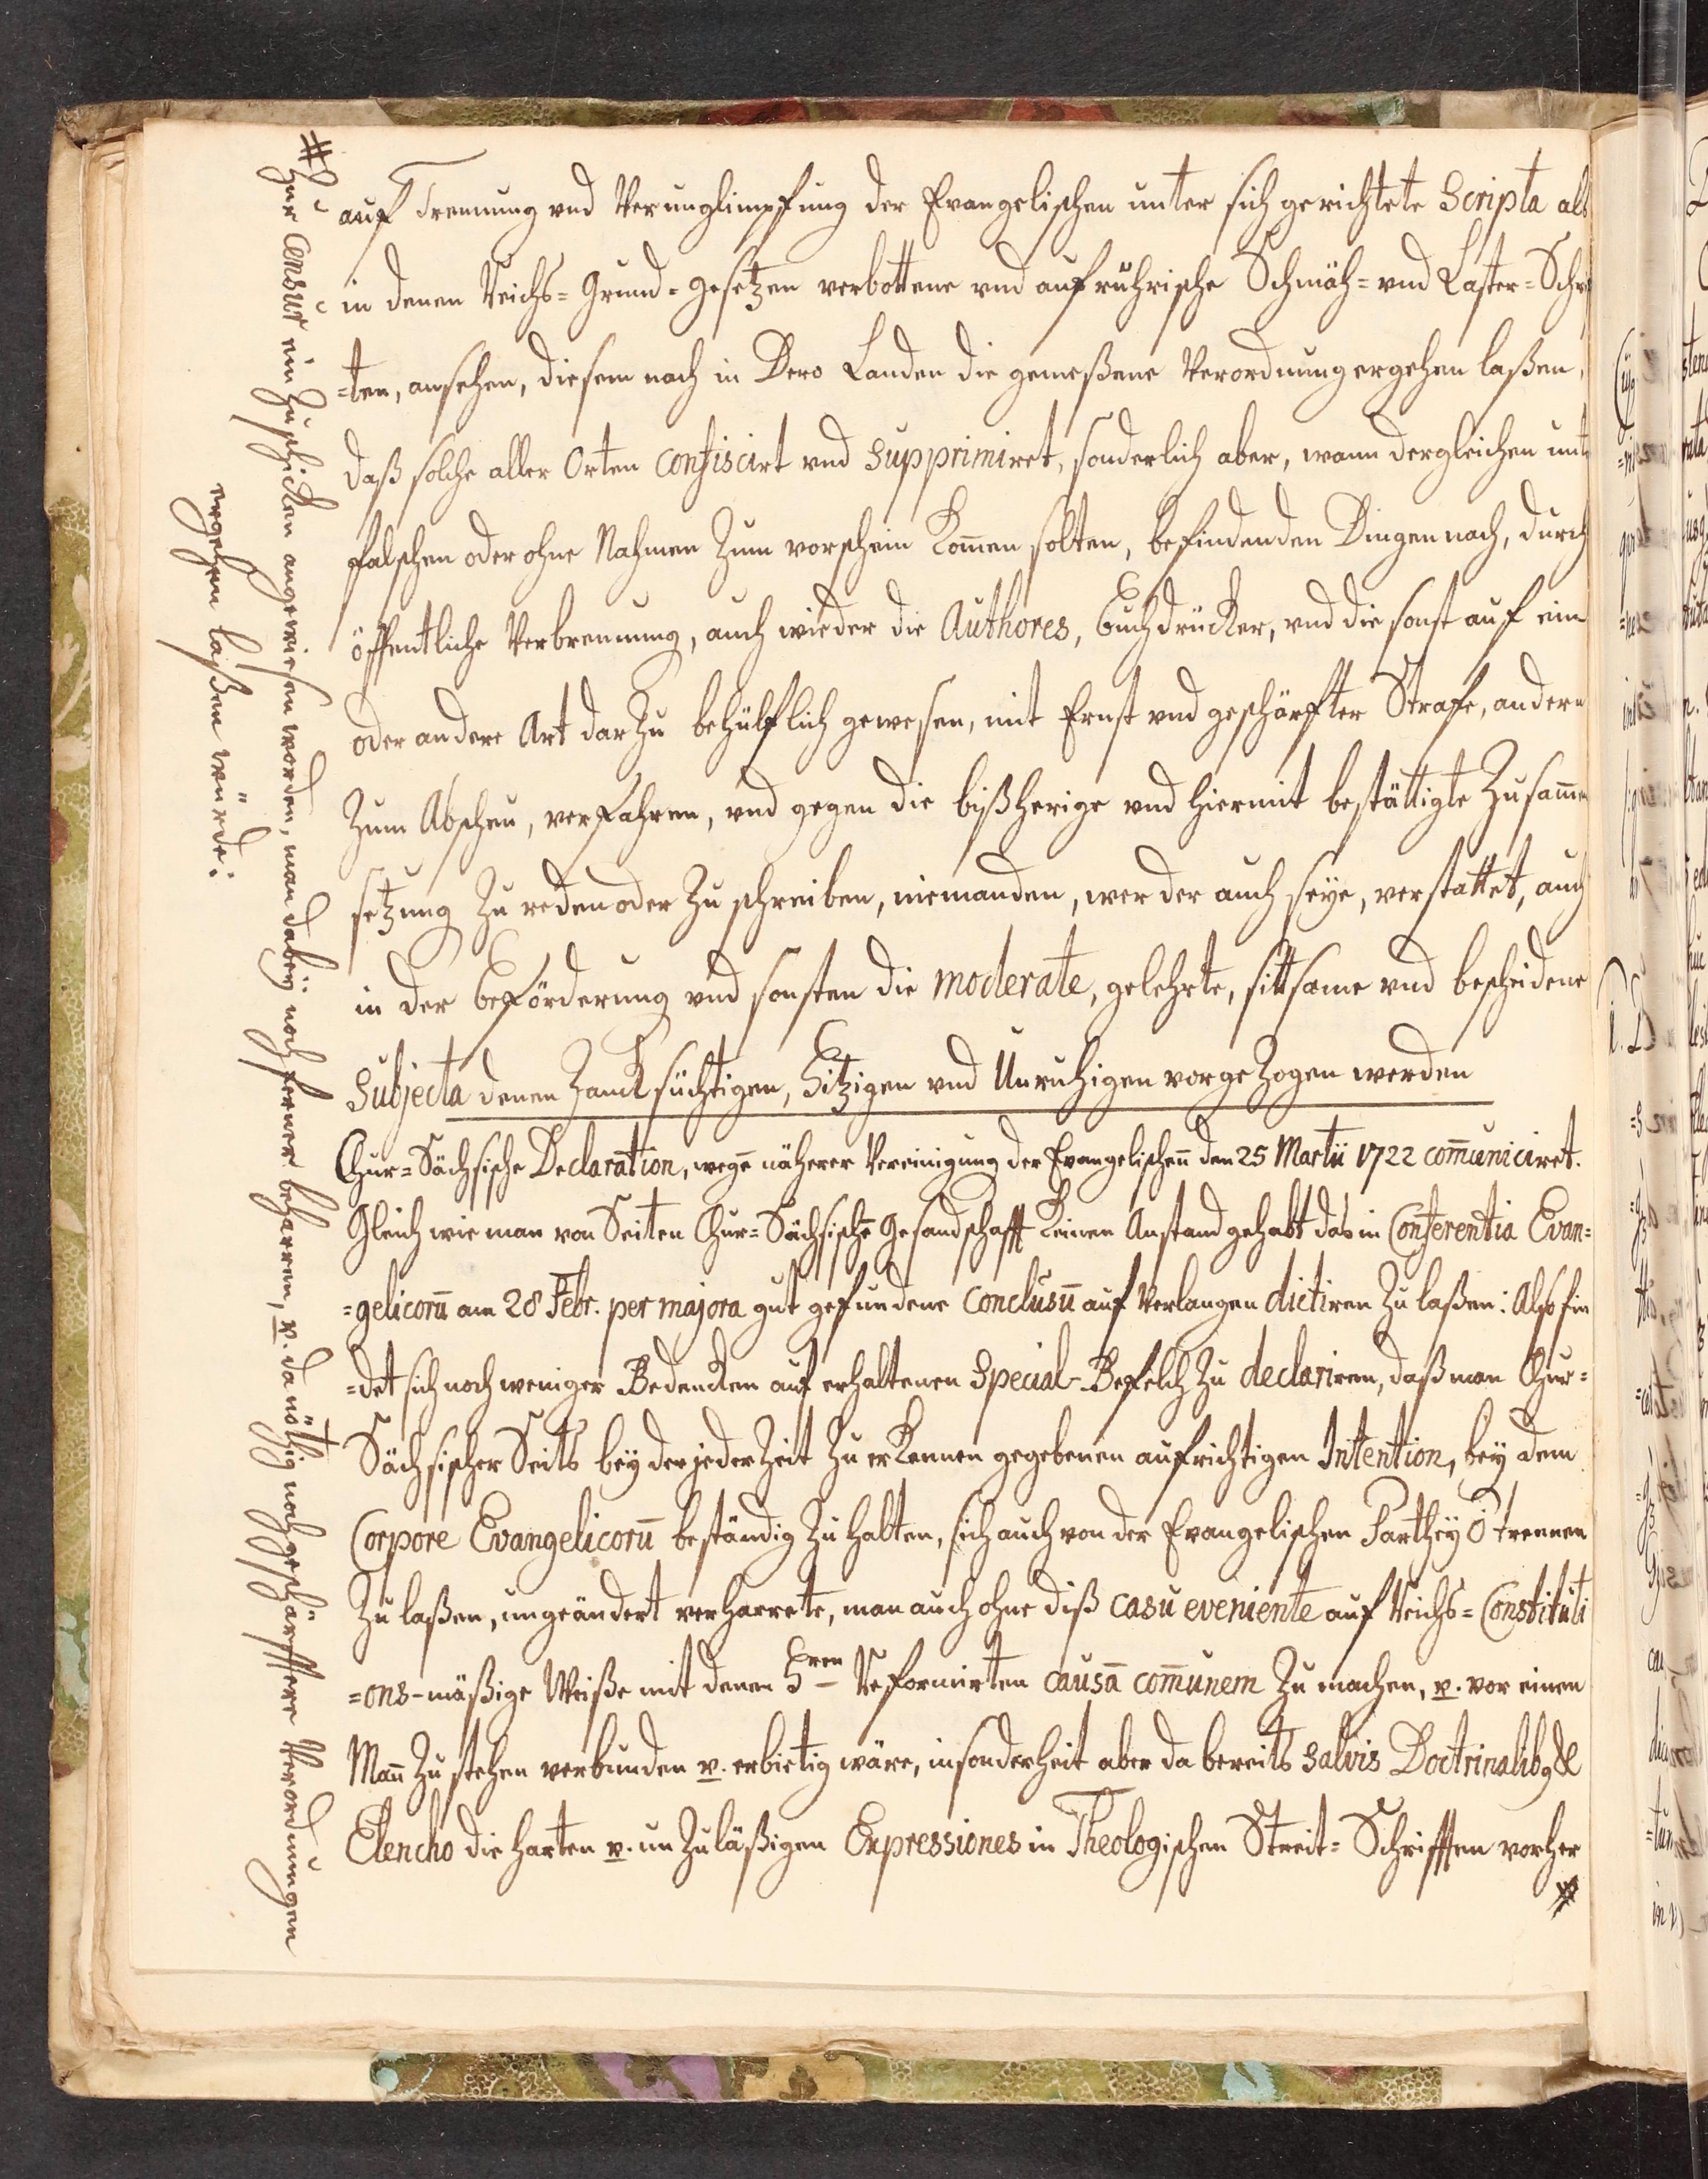 auf Trennung und Verunglimpfung der Evangelischen unter sich gerichtete Scripta als
in denen Reichs-Grund-Gesetzen verbottene und aufrührische Schmäh- und Laster-Schrif
=ten, ansehen, diesem nach in Dero Landen die gemeßene Verordnung ergehen laßen,
daß solche aller Orten confiscirt und supprimiret, sonderlich aber, wann dergleichen unter
falschen oder ohne Nahmen zum vorschein kom̄en solten, befindenden Dingen nach, durch
öffentliche Verbrennung, auch wieder die Authores, Buchdrücker, und die sonst auf ein
oder andere Art darzu behülflich gewesen, mit Ernst und geschärfter Strafe, andern
zum Abscheu, verfahren, und gegen die bißherige und hiermit bestättigte Zusam̄en
setzung zu reden oder zu schreiben, niemanden, wer der auch seye, verstattet, auch
in der Beförderung und sonsten die moderate, gelehrte, sittsame und bescheidene
Subjecta denen Zancksüchtigen, Hitzigen und Unruhigen vorgezogen werden
Chur=Sächsische Declaration, wegē näherer Vereinigung der Evangelischen̄ den 25 Martii 1722 com̄uniciret.
Gleich wie man von Seiten Chur=Sächsischē Gesandschafft keinen Anstand gehabt das in Conferentia Evan=
=gelicorū am 28 Febr. per majora gut gefundene Conclusū auf Verlangen dictiren zu laßen: Also fin
=det sich noch weniger Bedencken auf erhaltenen Special-Befelch zu declariren, daß man Chur=
Sächsischer Seits bey der jederzeit zu erkennen gegebenen aufrichtigen Intention, bey dem
Corpore Evangelicorū beständig zu halten, sich auch von der Evangelischen Parthey ō trennen
zu laßen, ungeändert verharrete, man auch ohne diß casu eveniente auf Reichs=Constituti
=ons-mäßige Weiße mit denen Hren Reformirten causā com̄unem zu machen, u. vor einen
Man̄ zu stehen verbunden u. erbietig wäre, insonderheit aber da bereits salvis Doctrinalibq &
Elencho die harten u. unzuläßigen Expressiones in Theologischen Streit=Schrifften vorher
#
# zur Censur einzuschicken angewiesen worden, man dabeÿ noch ferner beharren, u. da nöthig noch geschärfftere Verordnungen
ergehen laßen würde.